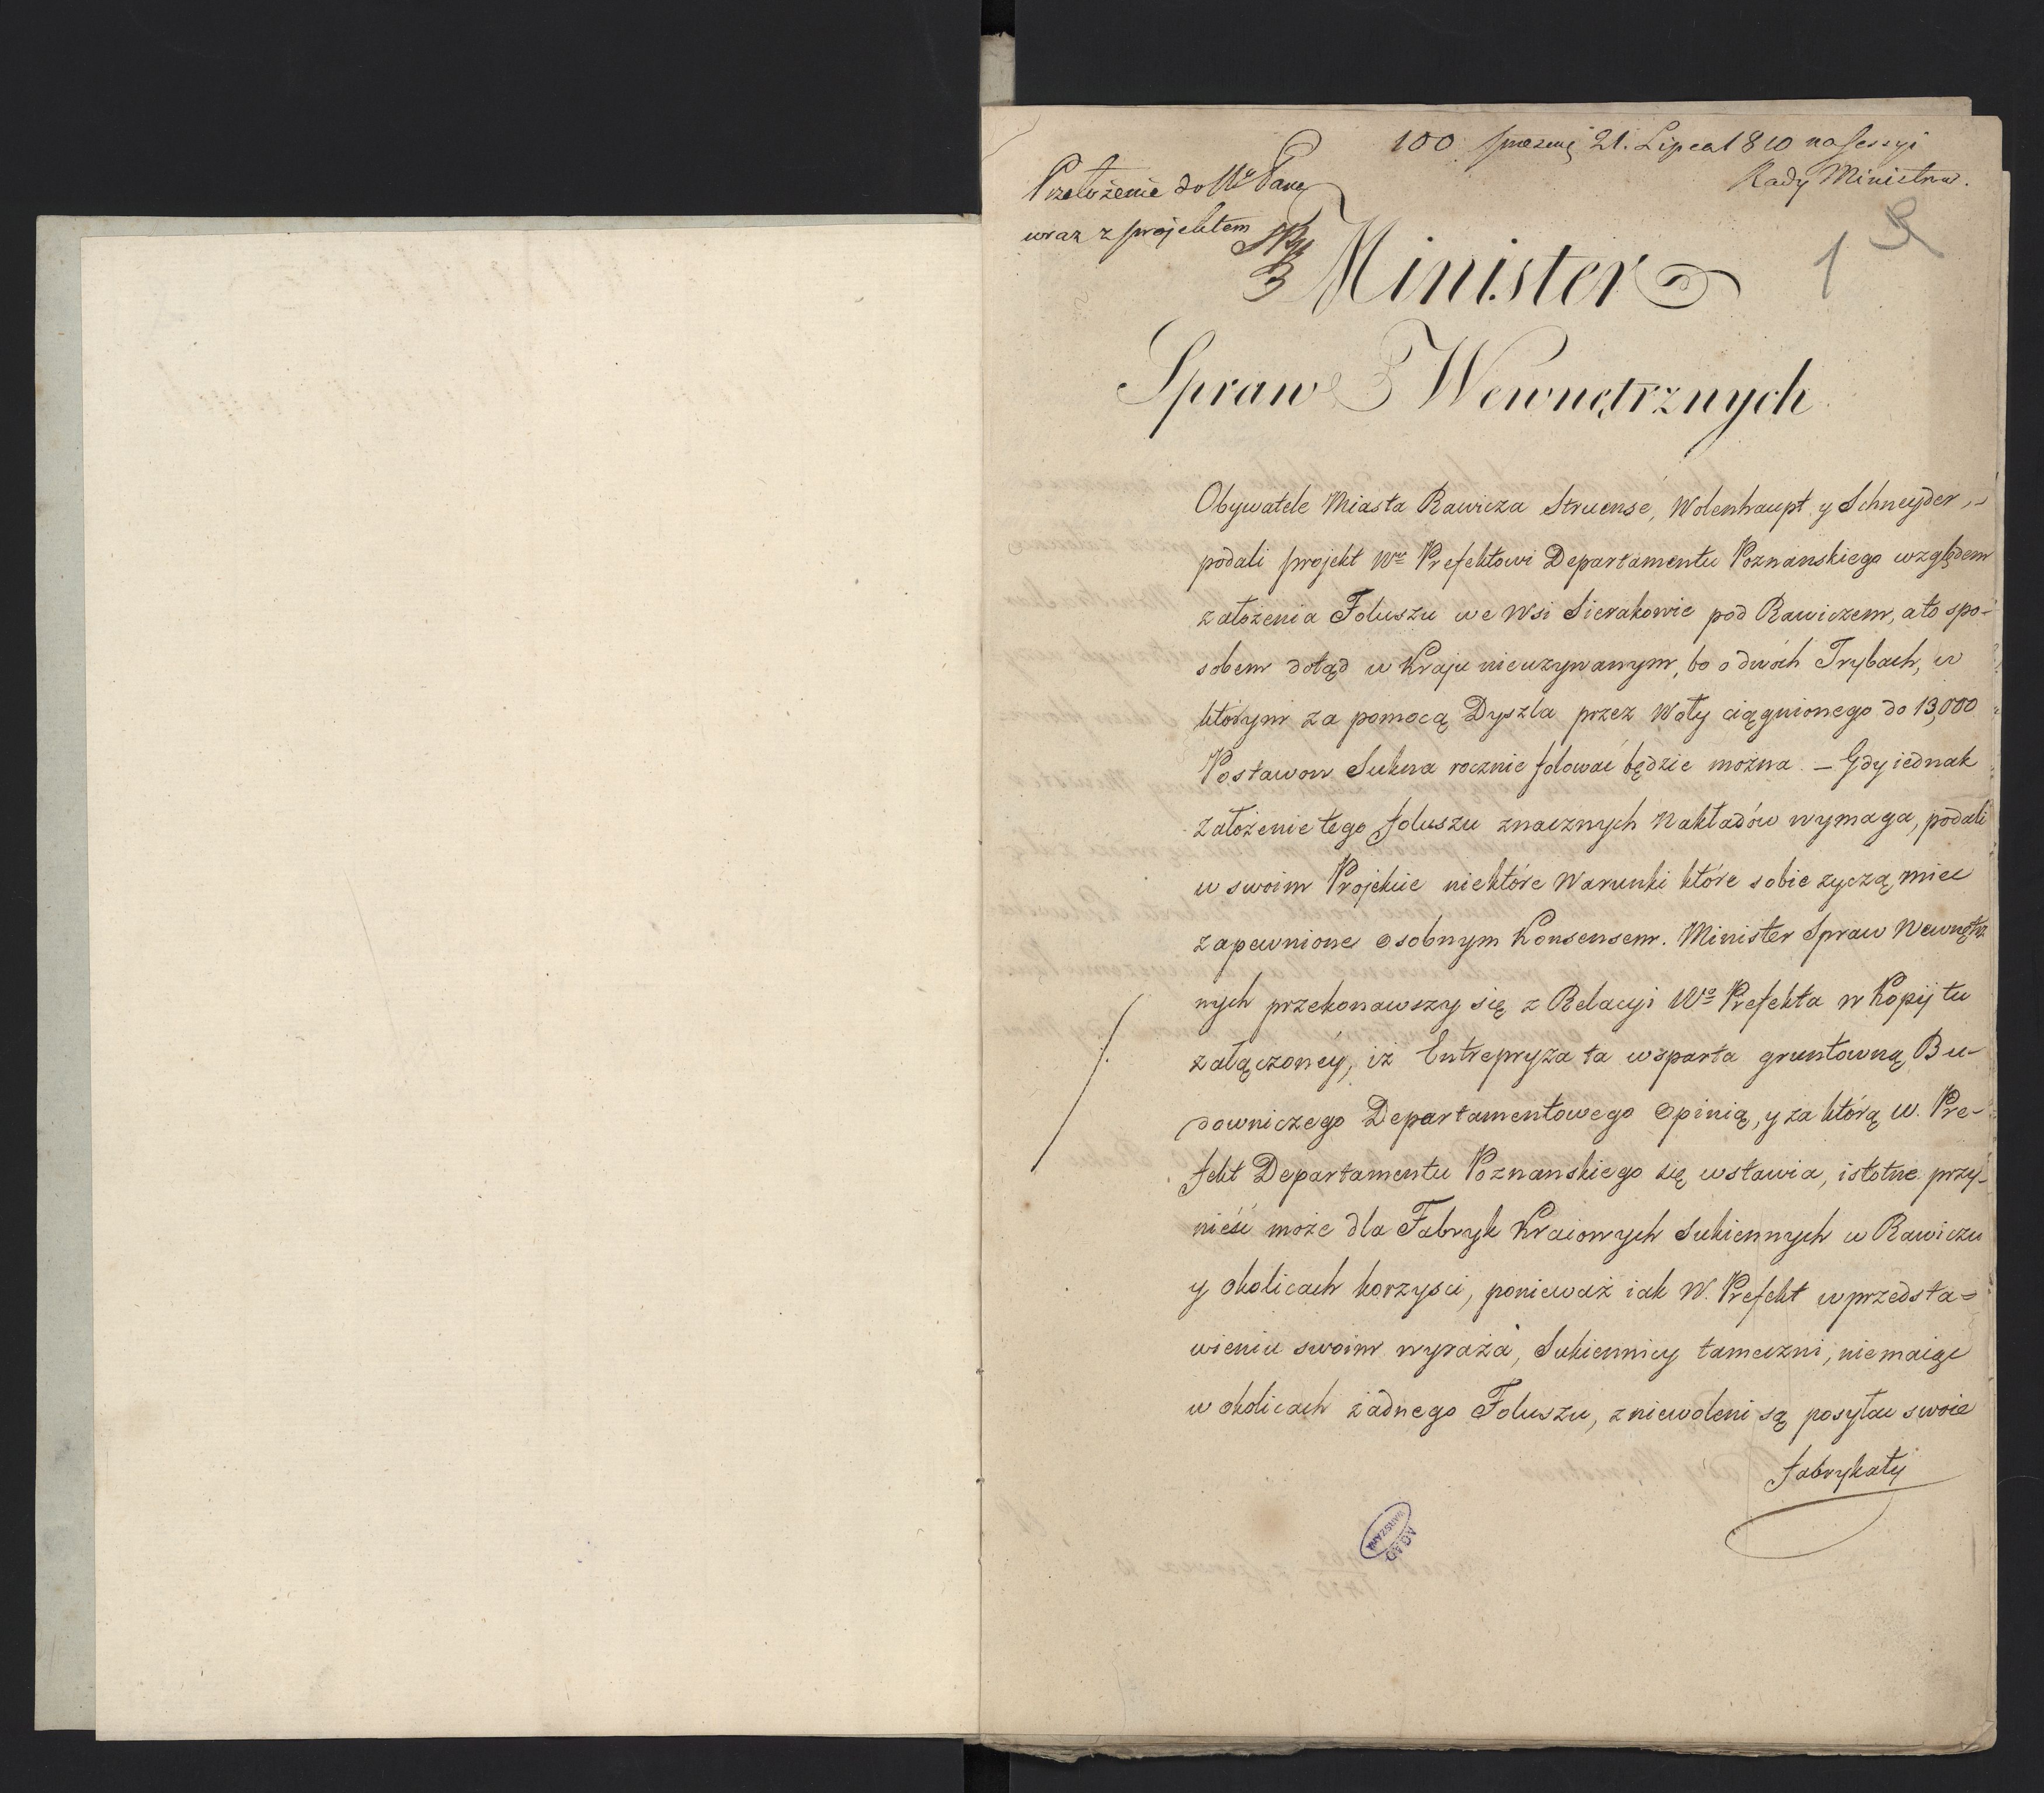 100 21. Lipca 1810 na Sessyi
Rady Ministrów.
Przełożenie do Nro Pana
wraz z projektem
1
Minister
Spraw Wewnętrznych
Obywatele Miasta Rawicza Struensé, Wolenhaupt y Schneyder,
podali projekt Wmu Prefektowi Departamentu Poznanskiego względem
założenia Foluszu we Wsi Sierakowie pod Rawiczem, a to spo-
sobem dotąd w Kraju nieuzywanym, bo o dwóch Trybach, w
którym za pomocą Dyszla przez Woły ciągnionego do 13,000
Postawow Sukna rocznie folować będzie można. – Gdy iednak
założenie tego foluszu znacznych Nakładów wymaga, podali
w swoim Projekcie niektóre Warunki które sobie zyczą miec
zapewnione osobnym Konsensem. Minister Spraw Wewnętrz
nych przekonawszy się z Relacyi Wgo Prefekta w Kopij tu
załączoney, iż Entrepryza ta wsparta gruntowną Bu-
downiczego Departamentowego Opinią, y za którą W. Pre-
fekt Departamentu Poznanskiego się wstawia, istotne przy-
nieść może dla Fabryk Kraiowych Sukiennych w Rawiczu
y okolicach korzysci, ponieważ iak W. Prefekt w przedsta=
wieniu swoim wyraża, Sukiennicy tameczni, niemaiąc
w okolicach żadnego Foluszu, zniewoleni są posyłac swoie
fabrykaty
AGAD
WARSZAWA